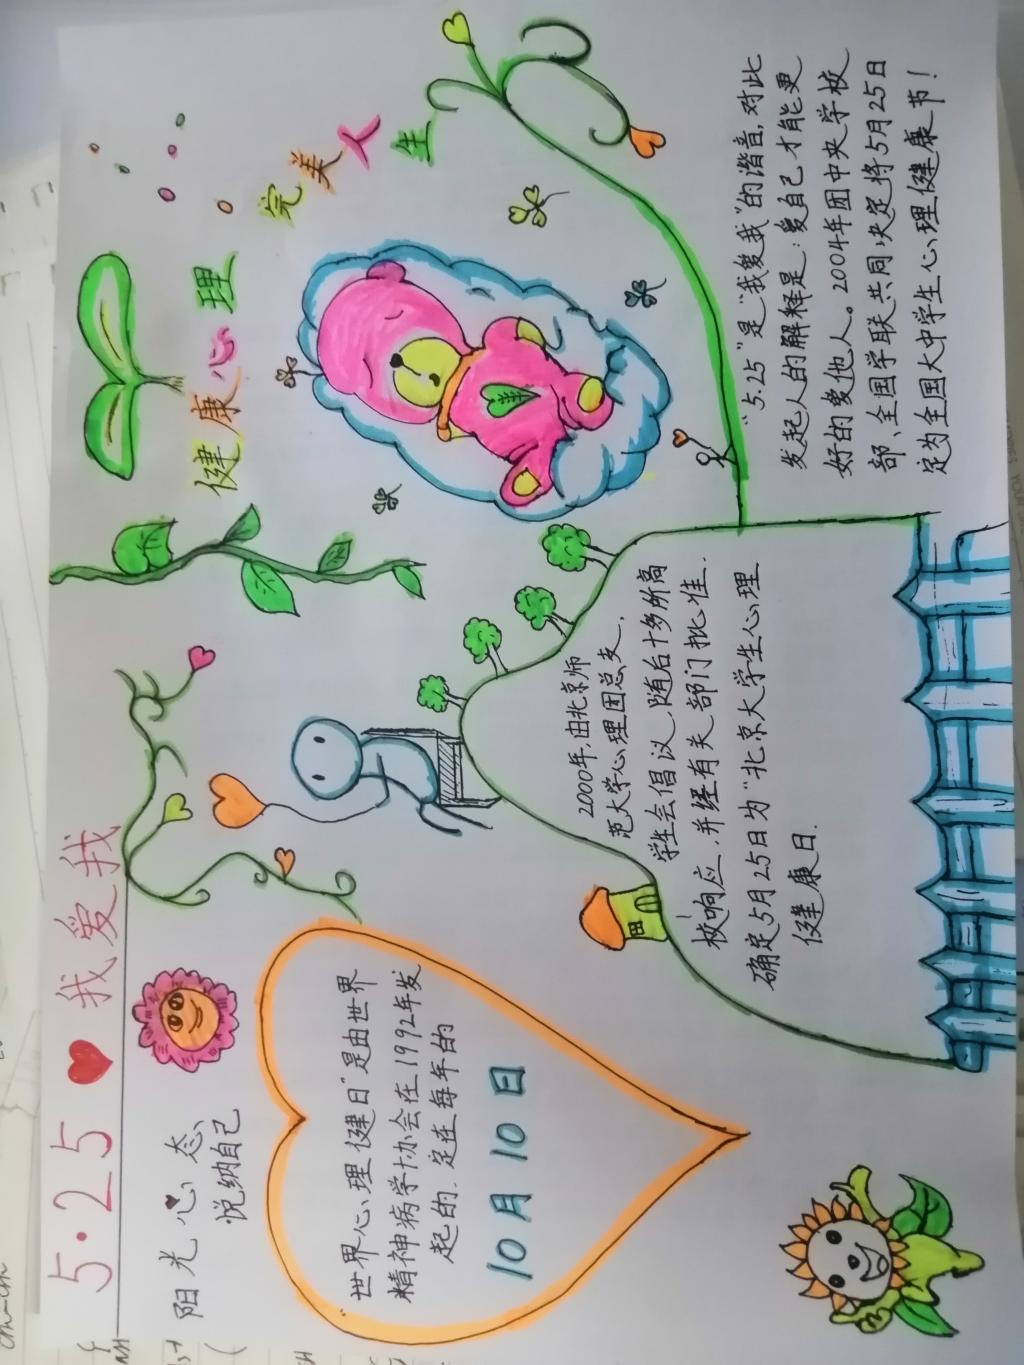 5·25 我爱我
阳光心态
悦纳自己
健康心理
完美人生
"世界心理健日"是由世界
精神病学协会在1992年发
起的.定在每年的
10月10日
2000年,由北京师
范大学心理团总支,
学生会倡议,随后十多所高
校响应,并经有关部门批准.
确定5月25日为"北京大学生心理
健康日.
"5.25"是"我爱我"的谐音,对此
发起人的解释是:爱自己才能更
好的爱他人。2004年团中央学校
部、全国学联共同决定将5月25日
定为全国大中学生心理健康节!